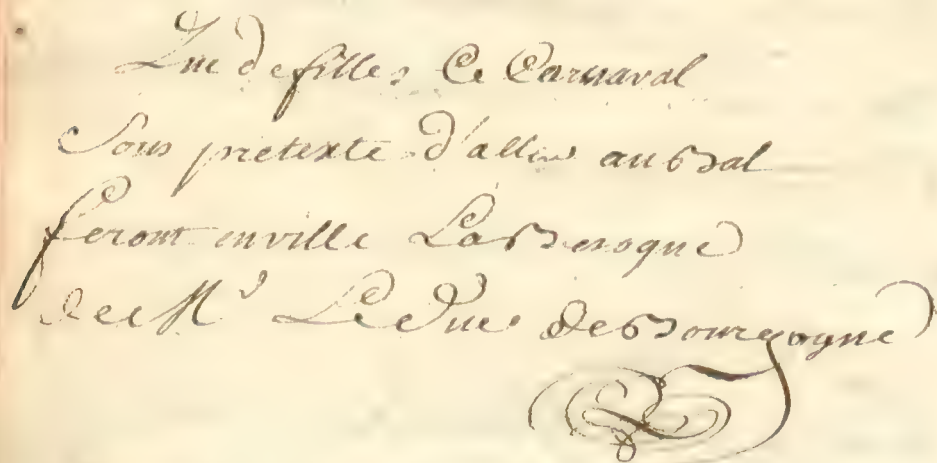 Que de filles Ce Carnaval
Sous pretexte d'aller au Bal
feront en ville La Besogne
de Mr Le Duc de Bourgogne